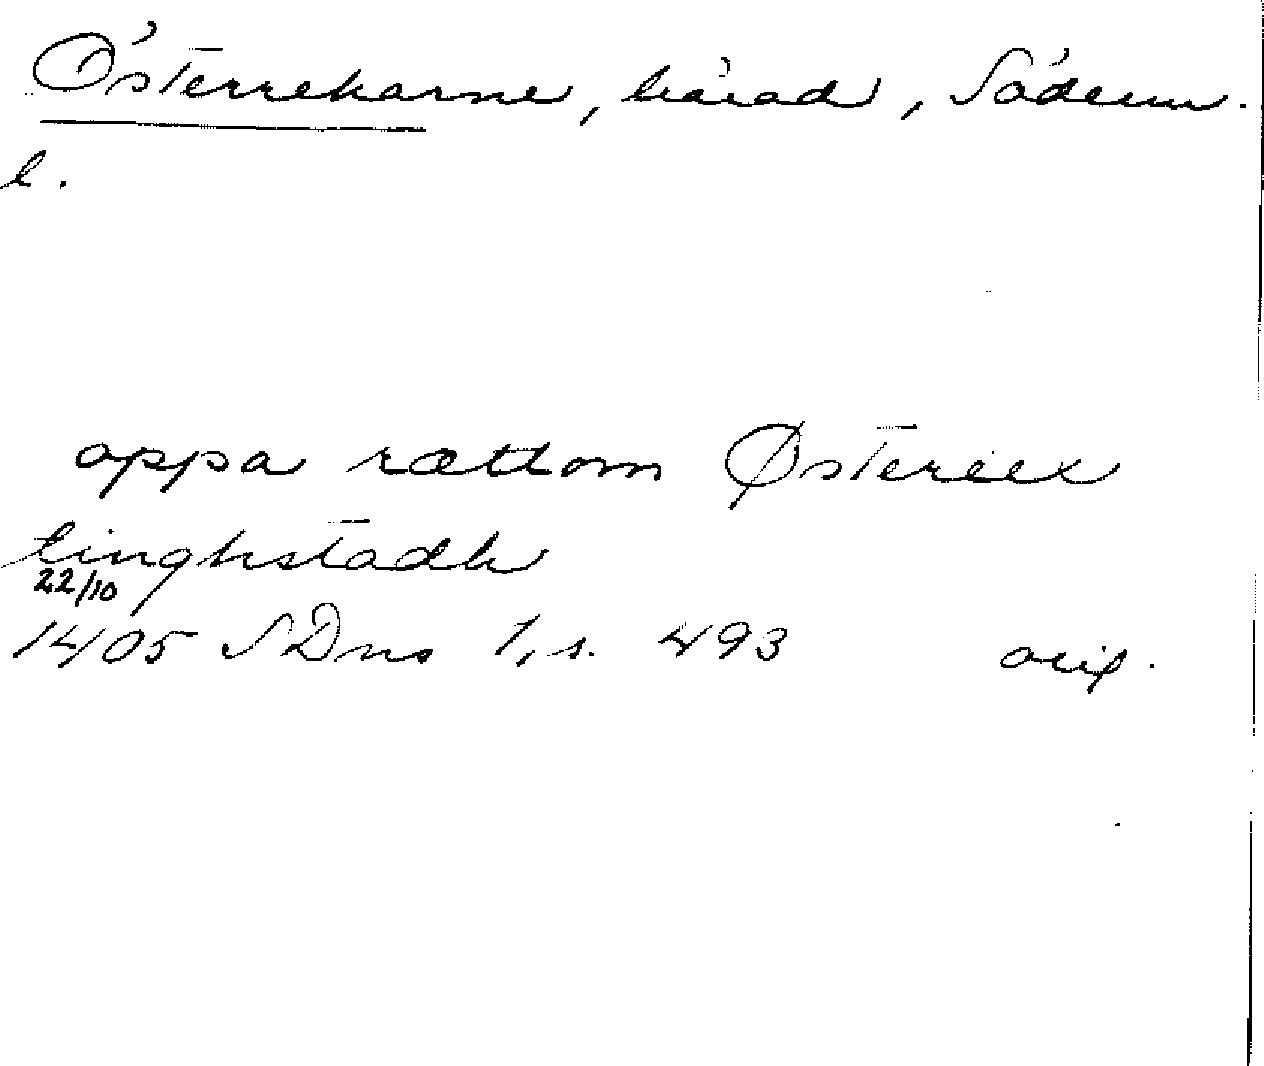 Österrekarne, härad, Söderm.
l.
oppa rættom Østereex
tinghstadh
22/10
1405 SDns 1, s. 493 orig.